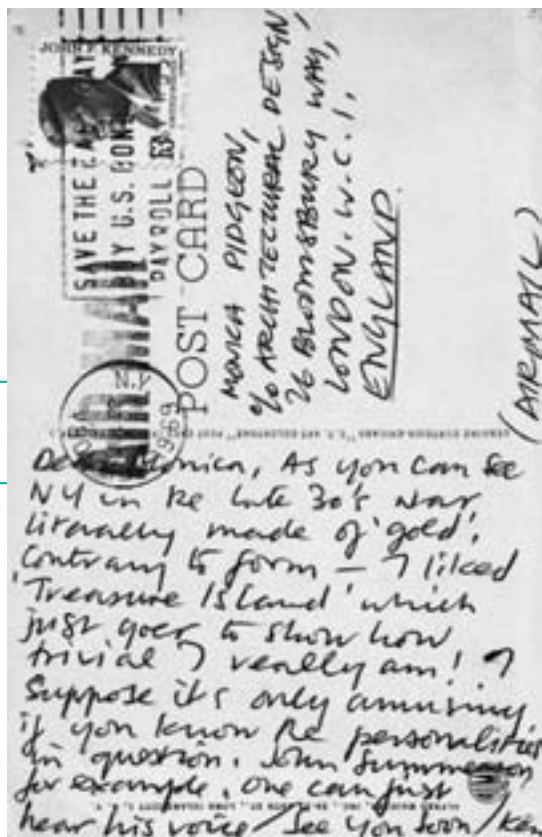 JOHN F. KENNEDY
SAVE THE EASY WAY
BUY U.S. BONDS
PAYROLL
AIR MAIL
N.Y.
1969
POST CARD
MONICA PIDGEON,
c/o ARCHITECTURAL DESIGN,
26 BLOOMSBURY WAY,
LONDON. W.C.1.
ENGLAND.
(AIRMAIL)
Dear Monica, As you can see
NY in the late 30's was
literally made of 'gold'.
Contrary to form — I liked
'Treasure Island' which
just goes to show how
trivial I really am! I
suppose it's only amusing
if you know the personalities
in question. John Summerson
for example, one can just
hear his voice/See you soon/Ken